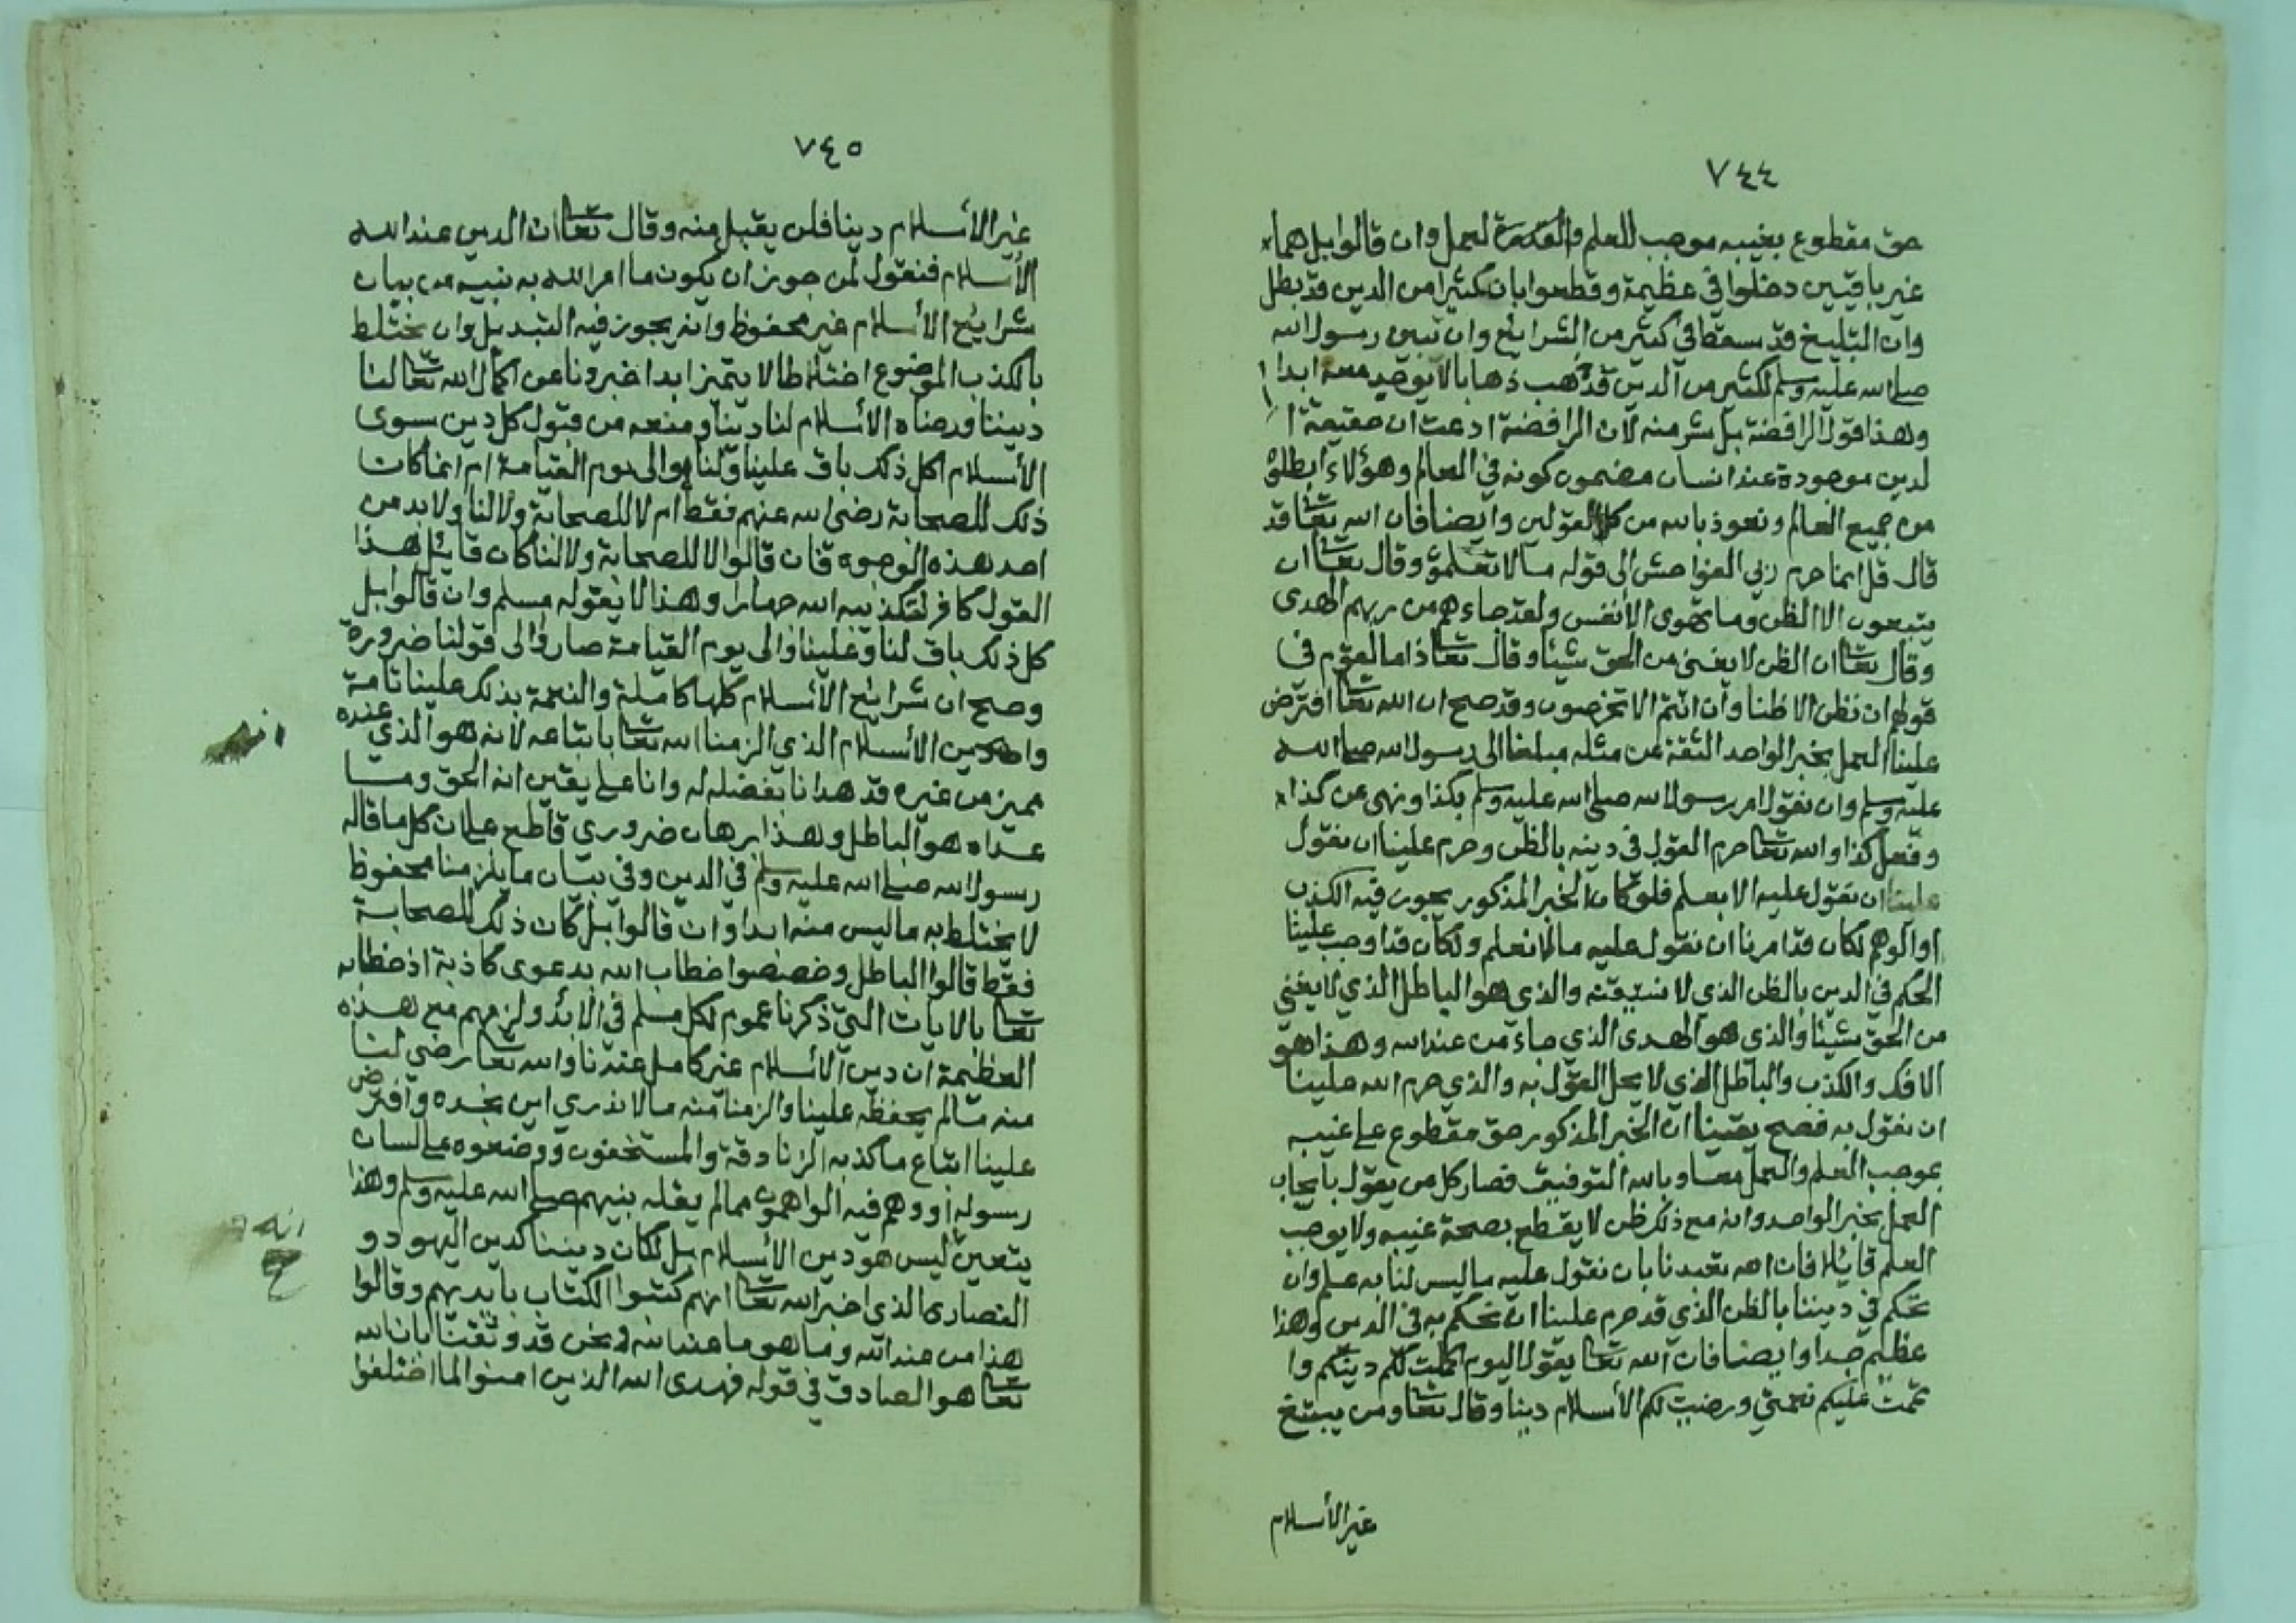 ٧٤٤
حق مقطوع بغيبه موجب للعلم والعمل وان قالوا بل هما
غير باقيين دخلوا في عظيمة وقطعوا بان كثيرا من الدين قد بطل
وان التبليغ قد سقط في كثير من الشرايع وان تبيين رسول الله
صلى الله عليه وسلم لكثير من الدين قد ذهب ذهابا لا يوجد معه ابدا
وهذا قول الرافضة بل شر منه لان الرافضة ادعت ان حقيقة ا
لدين موجودة عند انسان مضمون كونه في العالم وهؤلاء ابطلوه
من جميع العالم ونعوذ بالله من كلا القولين وايضا فان الله تعا قد
قال قل انما حرم ربي الفواحش الى قوله مالا تعلمون وقال تعا ان
يتبعون الا الظن وما تهوى الأنفس ولقد جاءهم من ربهم الهدى
وقال تعا ان الظن لا يغني من الحق شيئا وقال تعا ذاما لقوم في
قولهم ان نظن الا ظنا وان انتم الا تخرصون وقد صح ان الله تعا افترض
علينا العمل بخبر الواحد الثقة عن مثله مبلغا الى رسول الله صلى الله
عليه وسلم وان نقول امر رسول الله صلى الله عليه وسلم بكذا ونهى عن كذا
وفعل كذا والله تعا حرم القول في دينه بالظن وحرم علينا ان نقول
علينا ان نقول عليه الا بعلم فلو كان الخبر المذكور يجوز فيه الكذب
او الوهم لكان قد امرنا ان نقول عليه مالا نعلم ولكان قد اوجب علينا
الحكم في الدين بالظن الذي لا نتيقنه والذي هو الباطل الذي لا يغني
من الحق شيئا والذي هو الهدى الذي جاء من عند الله وهذا هو
الافك والكذب والباطل الذي لا يحل القول به والذي حرم الله علينا
ان نقول به فصح يقينا ان الخبر المذكور حق مقطوع على غيبه
بموجب العلم والعمل معا وبالله التوفيق فصار كل من يقول بايجاب
العمل بخبر الواحد وانه مع ذلك ظن لا يقطع بصحة غيبه ولا يوجب
العلم قائلا فان الله تعبدنا بان نقول عليه ما ليس لنا به علم وان
نحكم في ديننا بالظن الذي قد حرم علينا ان نحكم به في الدين وهذا
عظيم جدا وايضا فان الله تعا يقول اليوم اكملت لكم دينكم وا
تممت عليكم نعمتي ورضيت لكم الأسلام دينا وقال تعا ومن يبتغ
غير الأسلام
٧٤٥
غير الأسلام دينا فلن يقبل منه وقال تعا ان الدين عند الله
الأسلام فنقول لمن جوز ان يكون ما امر الله به نبيه من بيان
شرايع الأسلام غير محفوظ وانه يجوز فيه التبديل وان يختلط
بالكذب الموضوع اختلاطا لا يتميز ابدا اخبرونا عن اكمال الله تعا لنا
ديننا ورضاه الأسلام لنا دينا ومنعه من قبول كل دين سوى
الأسلام اكل ذلك باق علينا ولنا والى يوم القيامة ام انما كان
ذلك للصحابة رضى الله عنهم فقط ام لا للصحابة ولا لنا ولا بد من
احد هذه الوجوه فان قالوا لا للصحابة ولا لنا كان قايل هذا
القول كافر لتكذيبه الله جهارا وهذا لا يقوله مسلم وان قالوا بل
كل ذلك باق لنا وعلينا والى يوم القيامة صاروا الى قولنا ضرورة
وصح ان شرائع الأسلام كلها كاملة والنعمة بذلك علينا تامة
وان دين الأسلام الذي الزمنا الله تعا باتباعه لانه هو الذي عنده
مميز من غيره قد هدانا بفضله له وانا على يقين انه الحق وما
عداه هو الباطل وهذا برهان ضروري قاطع على ان كل ما قاله
رسول الله صلى الله عليه وسلم في الدين وفي بيان ما يلزمنا محفوظ
لا يختلط به ما ليس منه ابدا وان قالوا بل كان ذلك للصحابة
فقط قالوا الباطل وخصصوا خطاب الله بدعوى كاذبة اذ خطابه
تعا بالايات التي ذكرنا عموم لكل مسلم في الابد ولزمهم مع هذه
العظيمة ان دين الأسلام غير كامل عندنا والله تعا رضي لنا
منه مالم يحفظه علينا والزمنا منه مالا ندري اين نجده وافترض
علينا اتباع ما كذبه الزنادقة والمستخفون ووضعوه على لسان
رسوله او وهم فيه الواهمون مما لم يقله نبيهم صلى الله عليه وسلم وهذا
يتعين ليس هو دين الأسلام بل لكان ديننا كدين اليهود و
النصارى الذي اخبر الله تعا انهم كتبوا الكتاب بايديهم وقالوا
هذا من عند الله وما هو ما عند الله ونحن قد وثقنا بان الله
تعا هو الصادق في قوله فهدى الله الذين امنوا لما اختلفوا